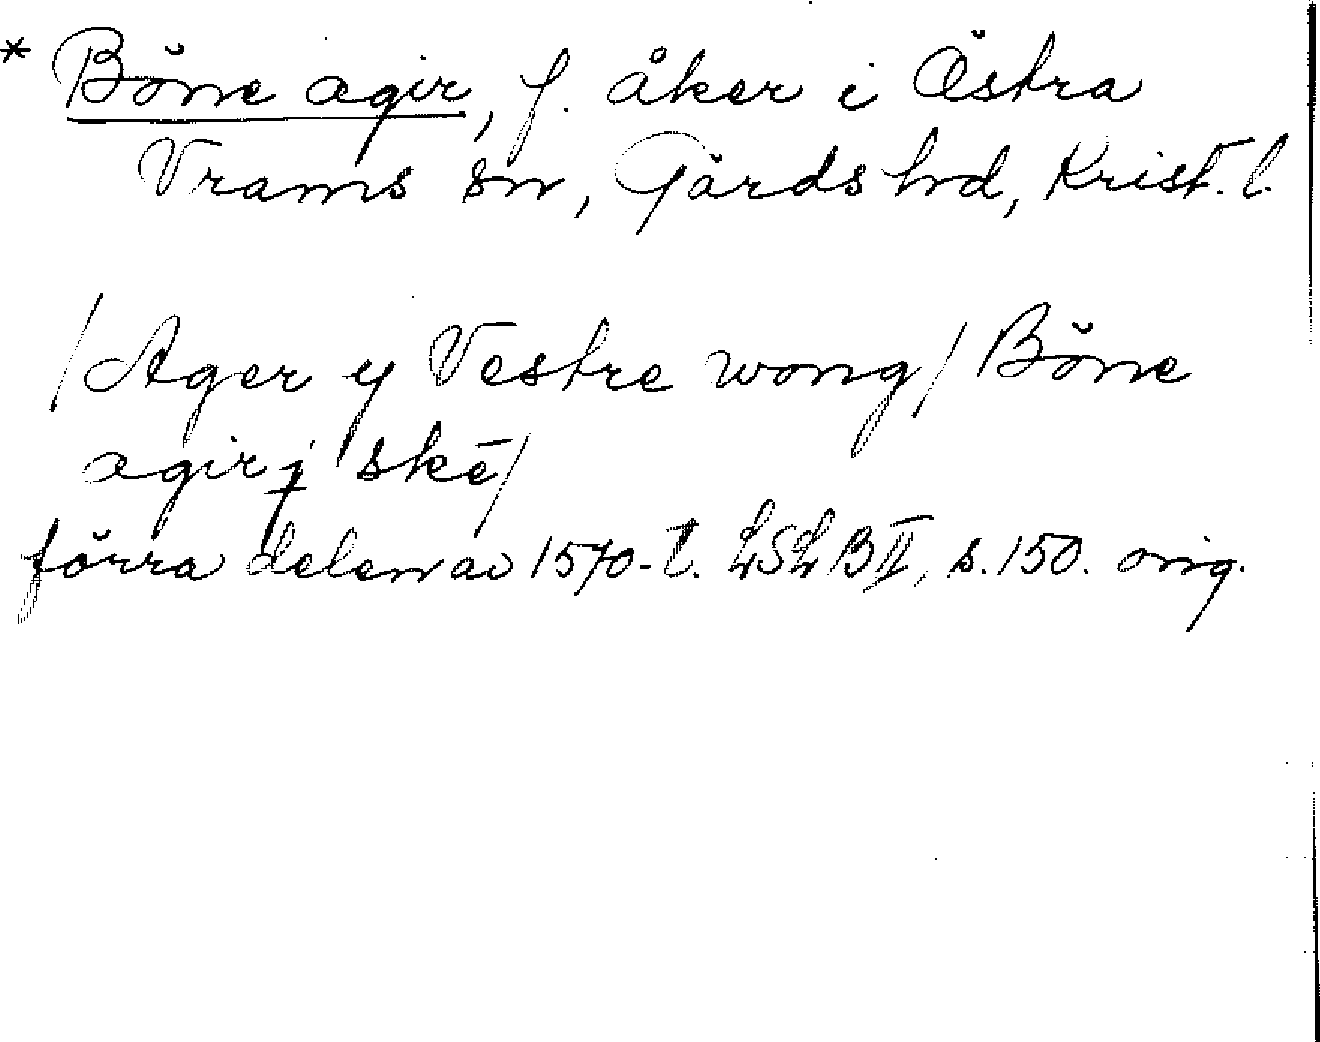 * Böne agir, f. åker i Östra
Vrams sn, Gärds hd, Krist. l.
/Ager y Vestre wong/ Böne
agir j skē/
förra delen av 1570-t. LSLB II, s. 150. orig.